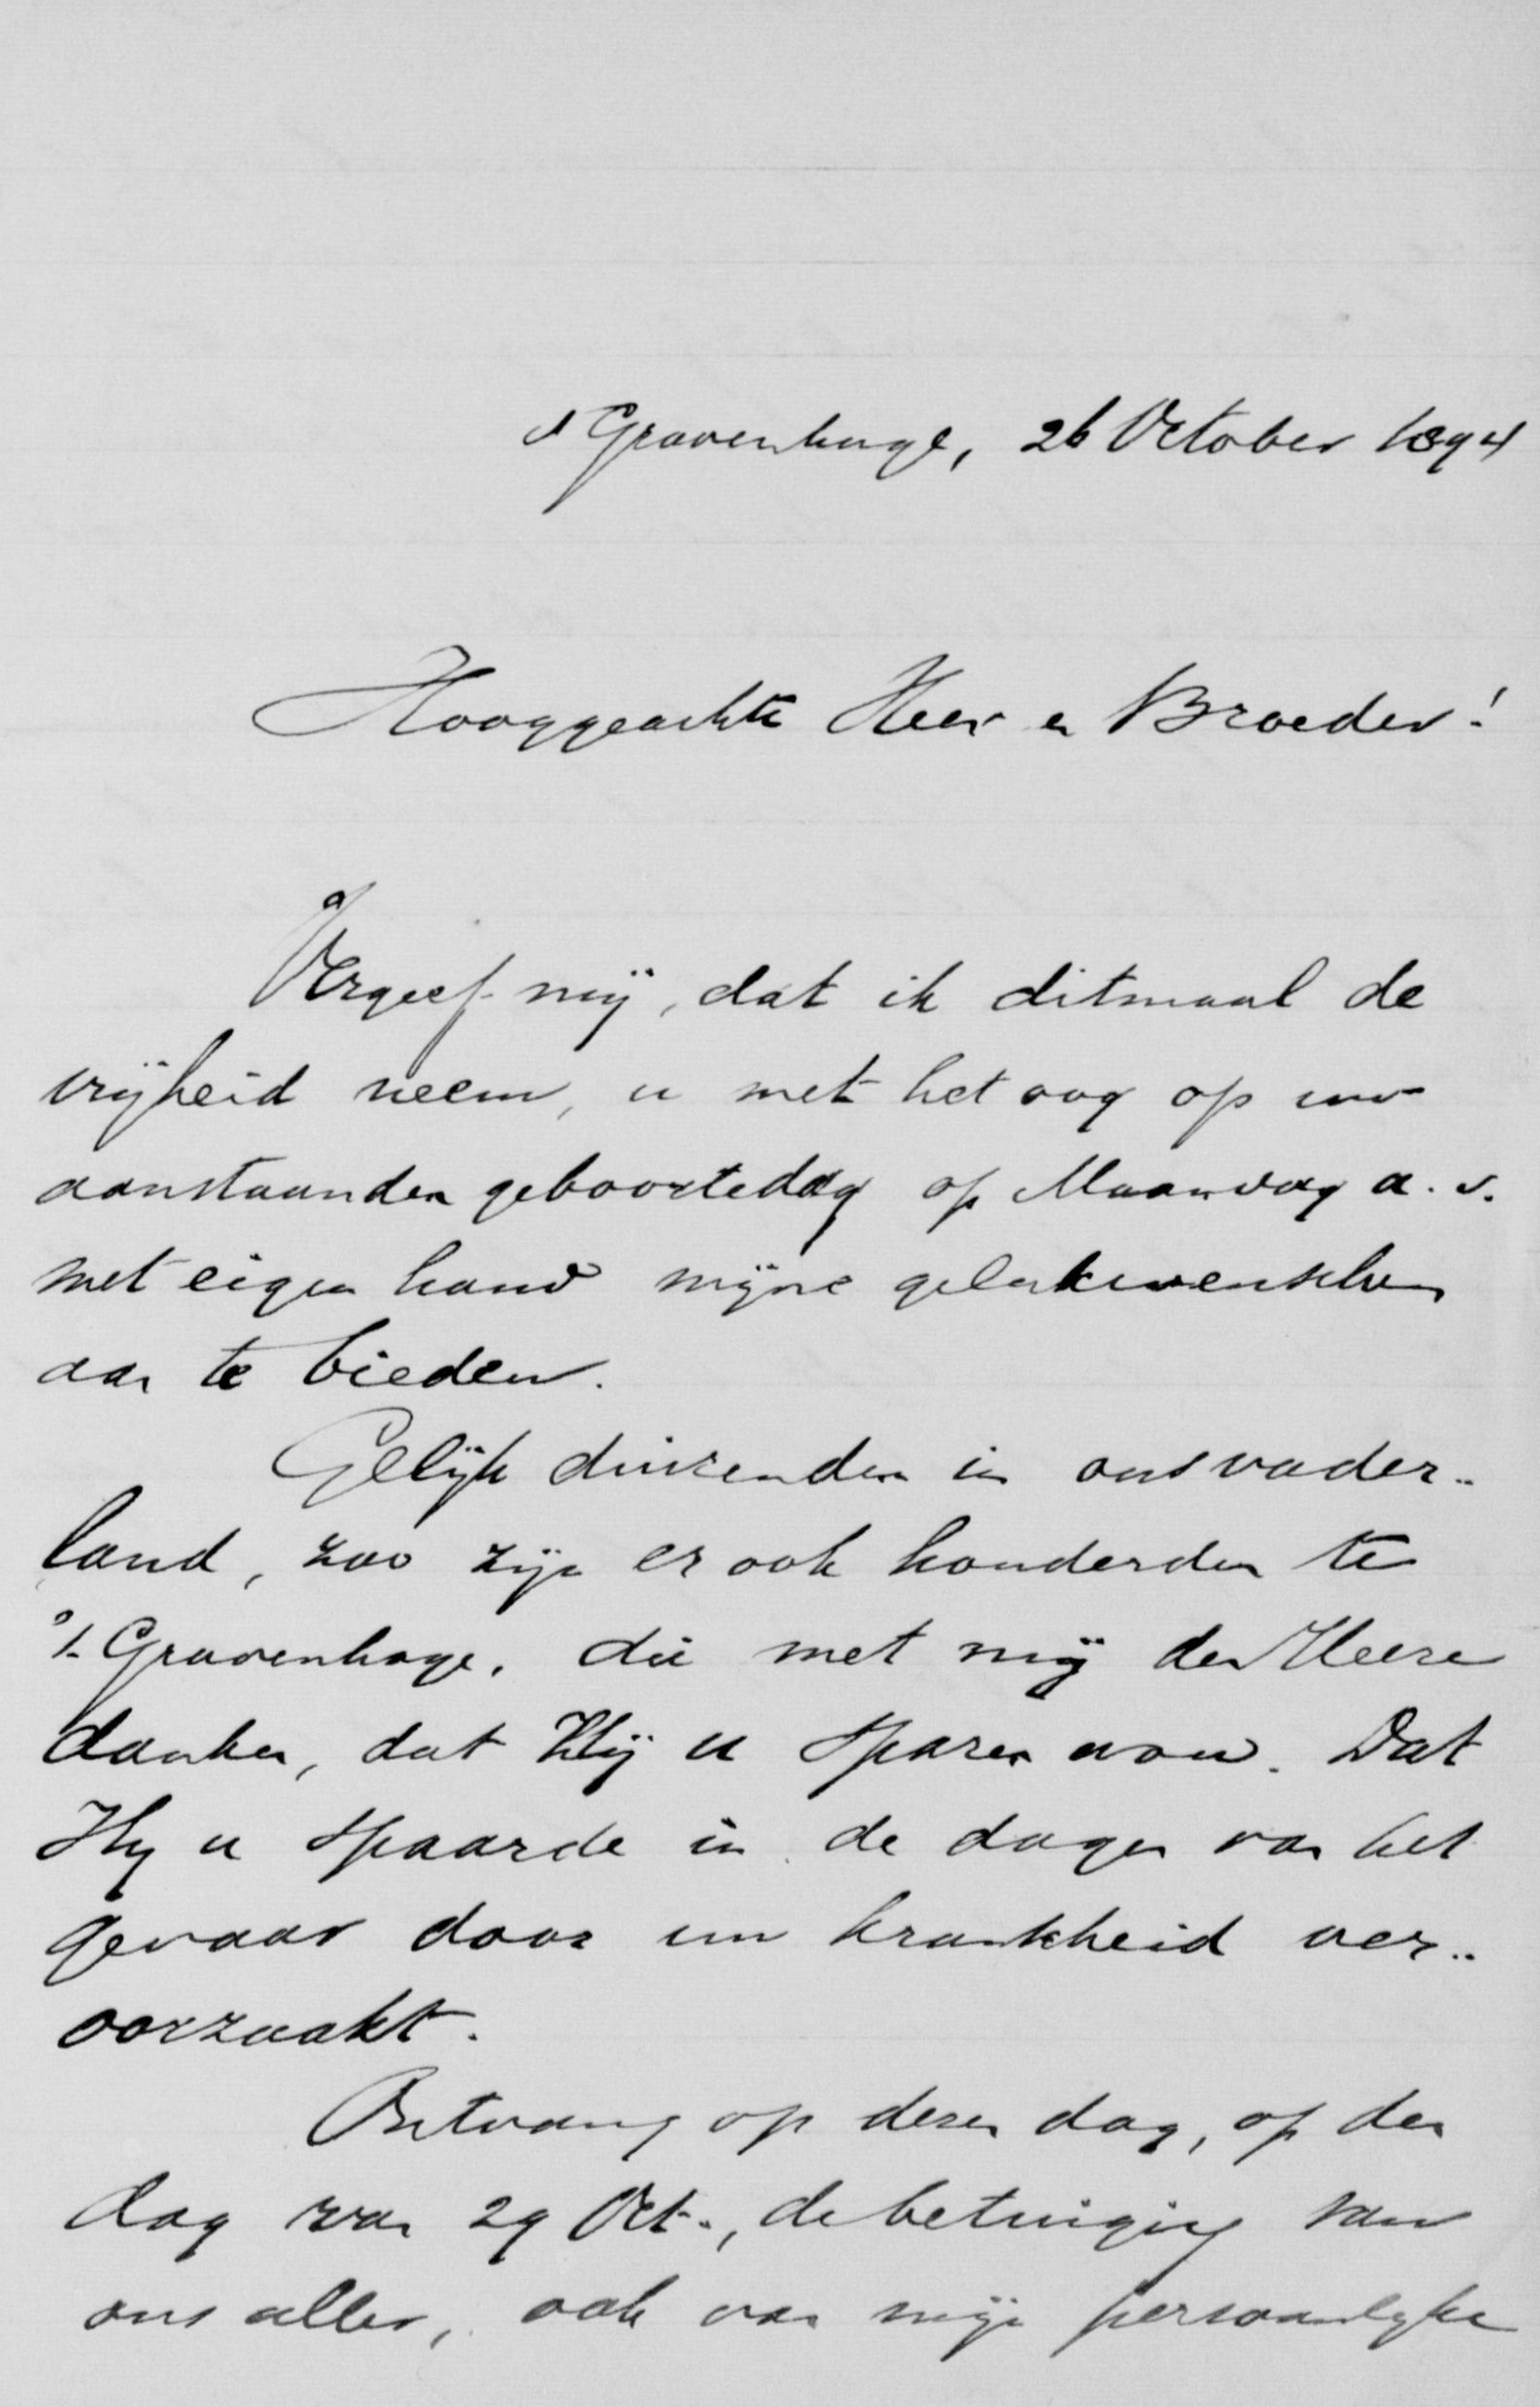 's Gravenhage, 26 October 1894
Hooggeachte Heer en Broeder!
Vergeef mij, dat ik ditmaal de
vrijheid neem, u met het oog op uw
aanstaanden geboortedag op Maandag a. s.
met eigen hand mijne gelukwenschen
aan te bieden.
Gelijk duizenden in ons vader-
land, zoo zijn er ook honderden te
's-Gravenhage, die met mij den Heere
danken, dat Hij u sparen wou. Dat
Hij u spaarde in de dagen van het
gevaar door uw krankheid ver-
oorzaakt.
Ontvang op dezen dag, op den
dag van 29 Oct., de betuiging van
ons allen, ook van mijn persoonlijke